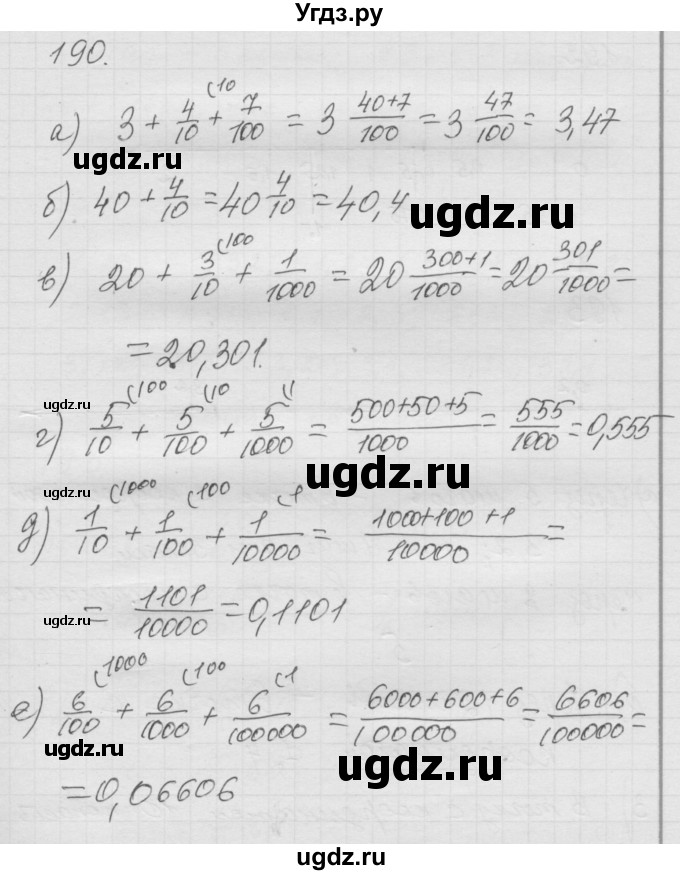 Угдз.ру
190.
а) 3 + 4/10 (10 + 7/100 = 3 (40+7)/100 = 3 47/100 = 3,47
ugdz.ru
б) 40 + 4/10 = 40 4/10 = 40,4
ugdz.ru
в) 20 + 3/10 (100 + 1/1000 = 20 (300+1)/1000 = 20 301/1000 =
= 20,301.
ugdz.ru
г) 5/10 (100 + 5/100 (10 + 5/1000 (1 = (500+50+5)/1000 = 555/1000 = 0,555
ugdz.ru
ugdz.ru
д) 1/10 (1000 + 1/100 (100 + 1/10000 (1 = (1000+100+1)/10000 =
= 1101/10000 = 0,1101
ugdz.ru
е) 6/100 (1000 + 6/1000 (100 + 6/100000 (1 = (6000+600+6)/100000 = 6606/100000 =
ugdz.ru
ugdz.ru
= 0,06606
ugdz.ru